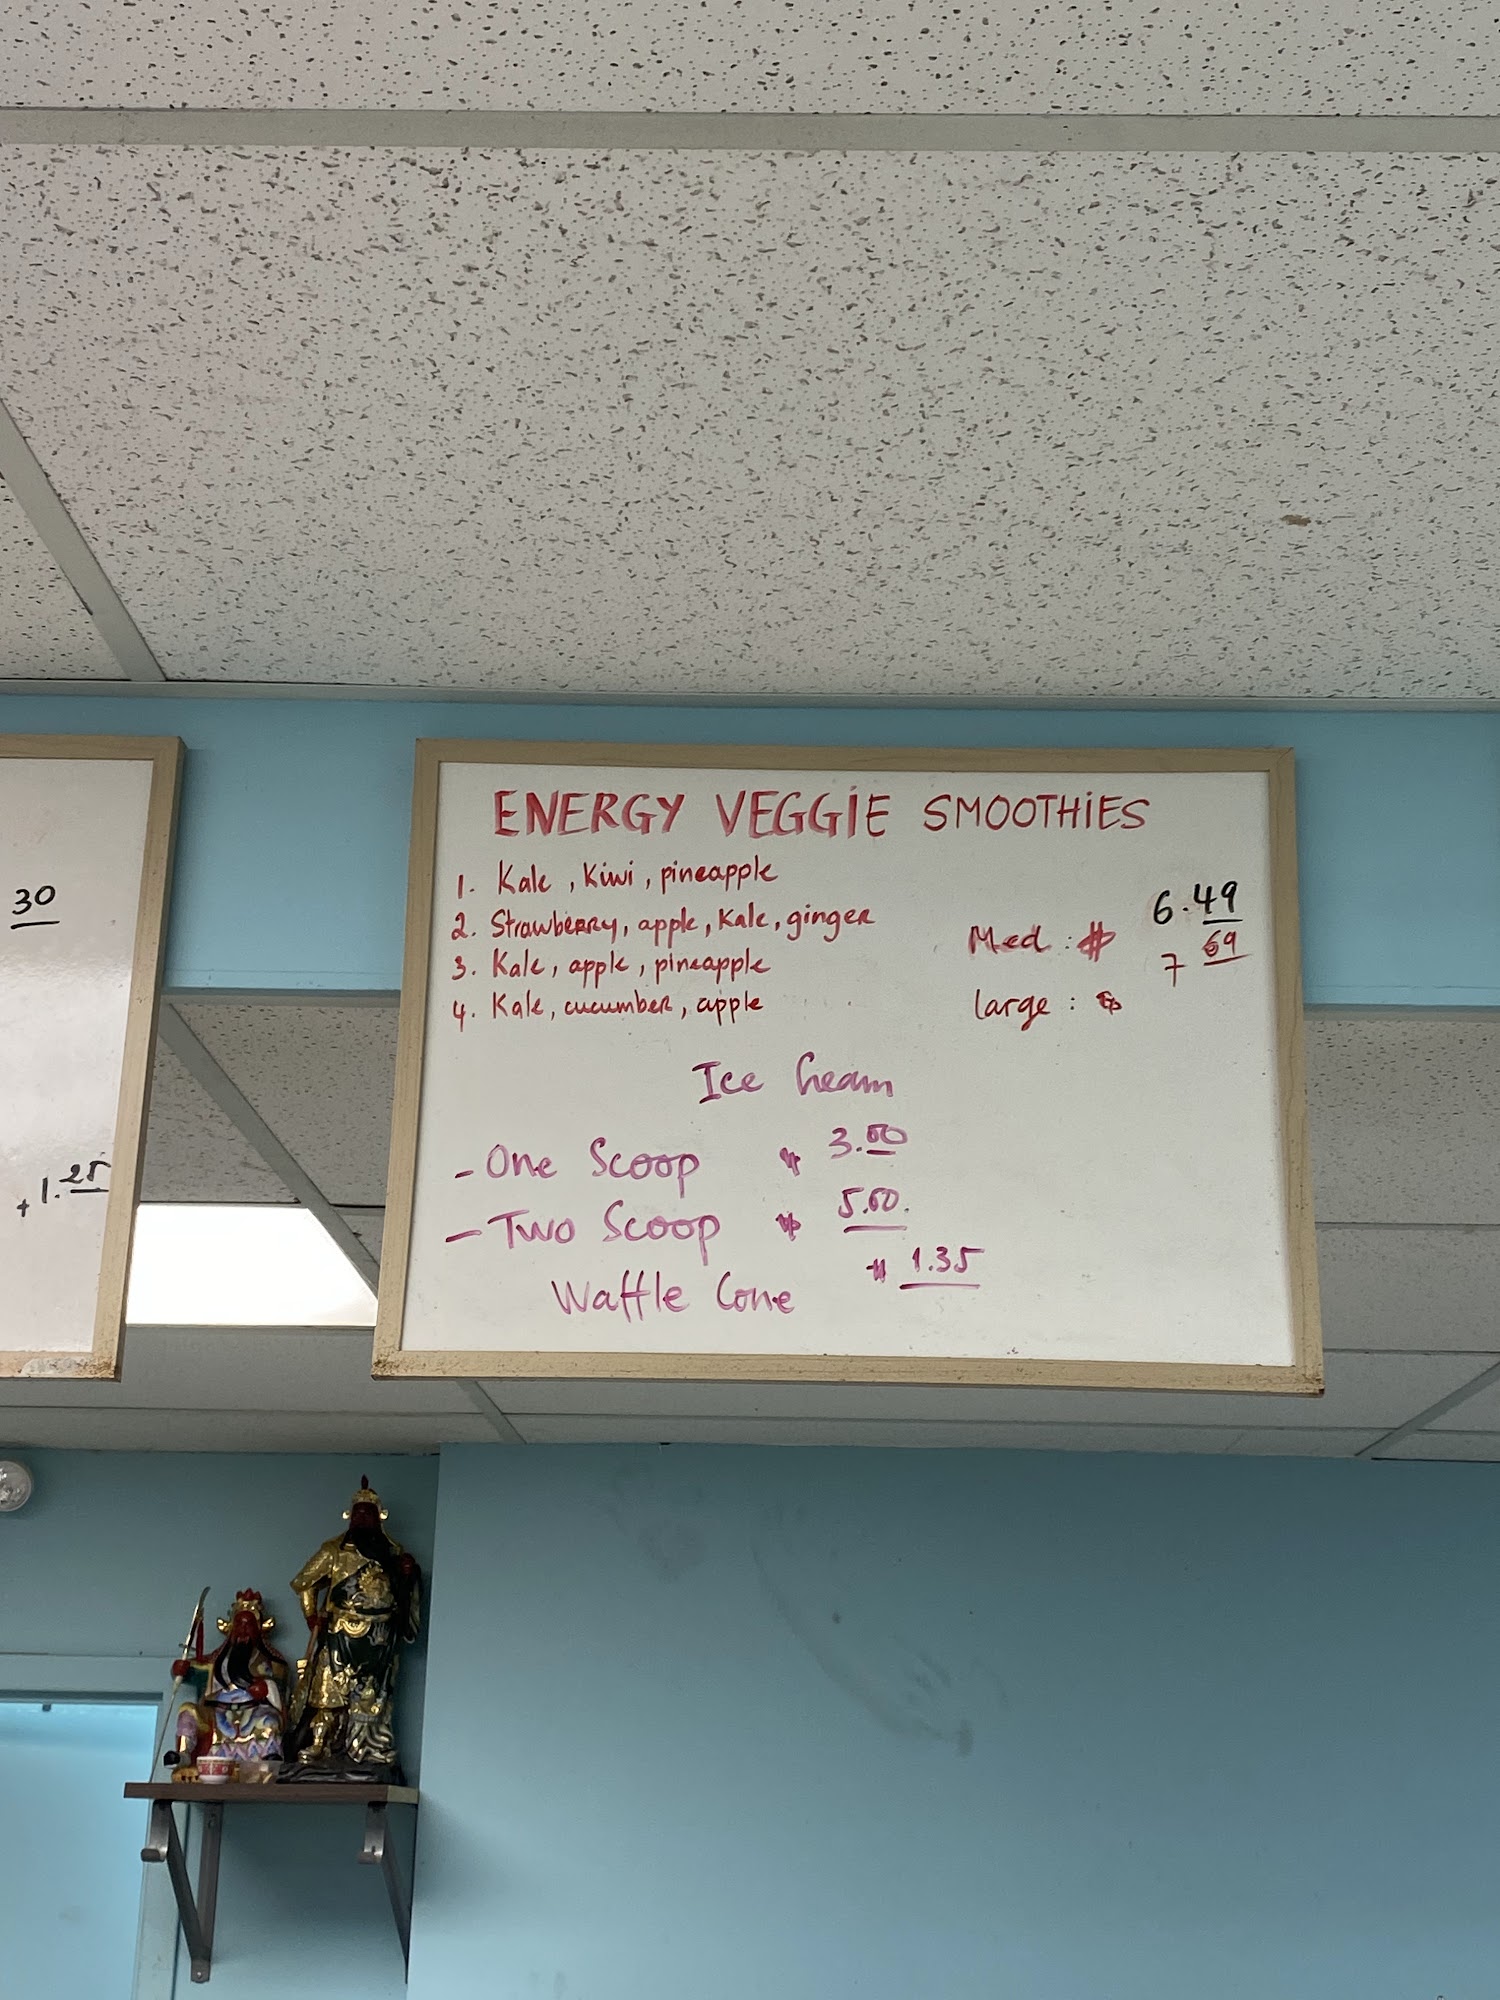 30
+1.25
ENERGY VEGGIE SMOOTHIES
1. Kale, Kiwi, pineapple
2. Strawberry, apple, Kale, ginger
3. Kale, apple, pineapple
4. Kale, cucumber, apple
Med : $ 6.49
large : $ 7 69
Ice Cream
- One Scoop $ 3.00
- Two Scoop $ 5.00.
Waffle Cone $ 1.35